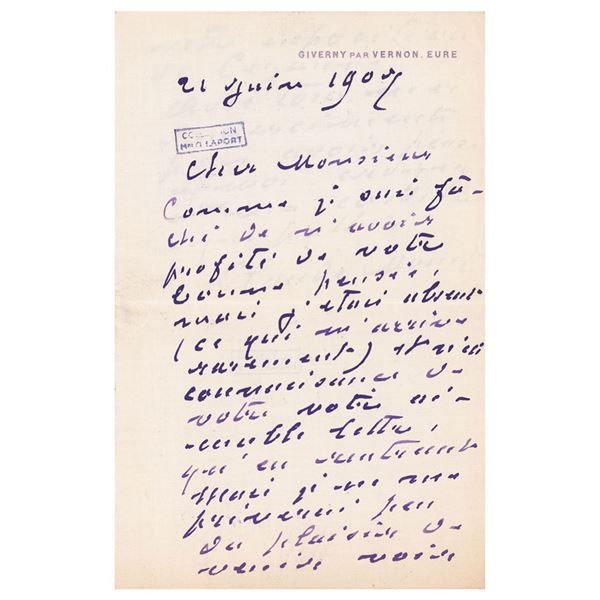 GIVERNY PAR VERNON. EURE
21 Juin 1907
COLLECTION
Mme G. LAPORT
Cher Monsieur
Comme je suis fâ-
ché de n'avoir
profité de votre
bonne pensée,
mais j'étais absent
(ce qui m'arrive
rarement) et n'ai
connaissance de
votre votre ai-
mable lettre,
qu'en rentrant
mais je ne me
priverai pas
du plaisir de
venir voir